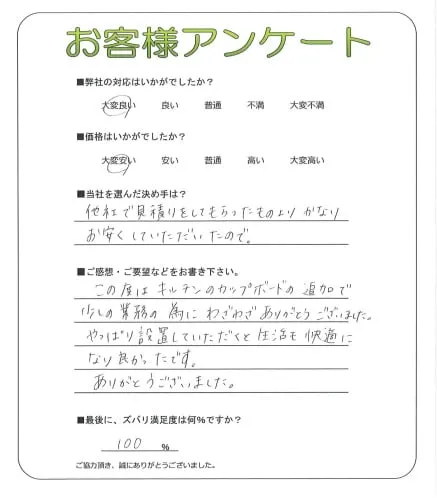 お客様アンケート
■弊社の対応はいかがでしたか？
大変良い 良い 普通 不満 大変不満
■価格はいかがでしたか？
大変安い 安い 普通 高い 大変高い
■当社を選んだ決め手は？
他社で見積りをしてもらったものより かなり
お安くしていただいたので。
■ご感想・ご要望などをお書き下さい。
この度は キッチンのカップボードの 追加で
少しの業務の 為に わざわざありがとうございました。
やっぱり設置していただくと 生活も 快適に
なり良かったです。
ありがとうございました。
■最後に、ズバリ満足度は何％ですか？
100 ％
ご協力頂き、誠にありがとうございました。